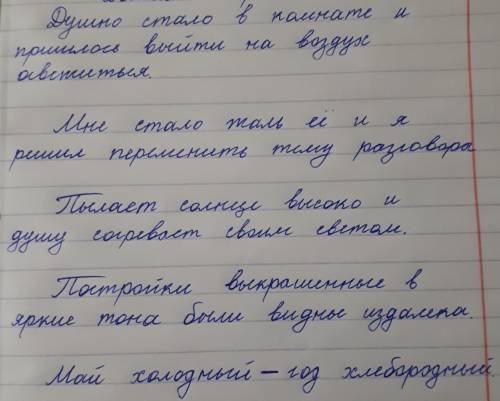 Душно стало в комнате и
пришлось выйти на воздух
освежиться.
Мне стало жаль её и я
решил переменить тему разговора
Пылает солнце высоко и
душу согревает своим светом.
Постройки выкрашенные в
яркие тона были видны издалека.
Май холодный – год хлебородный.